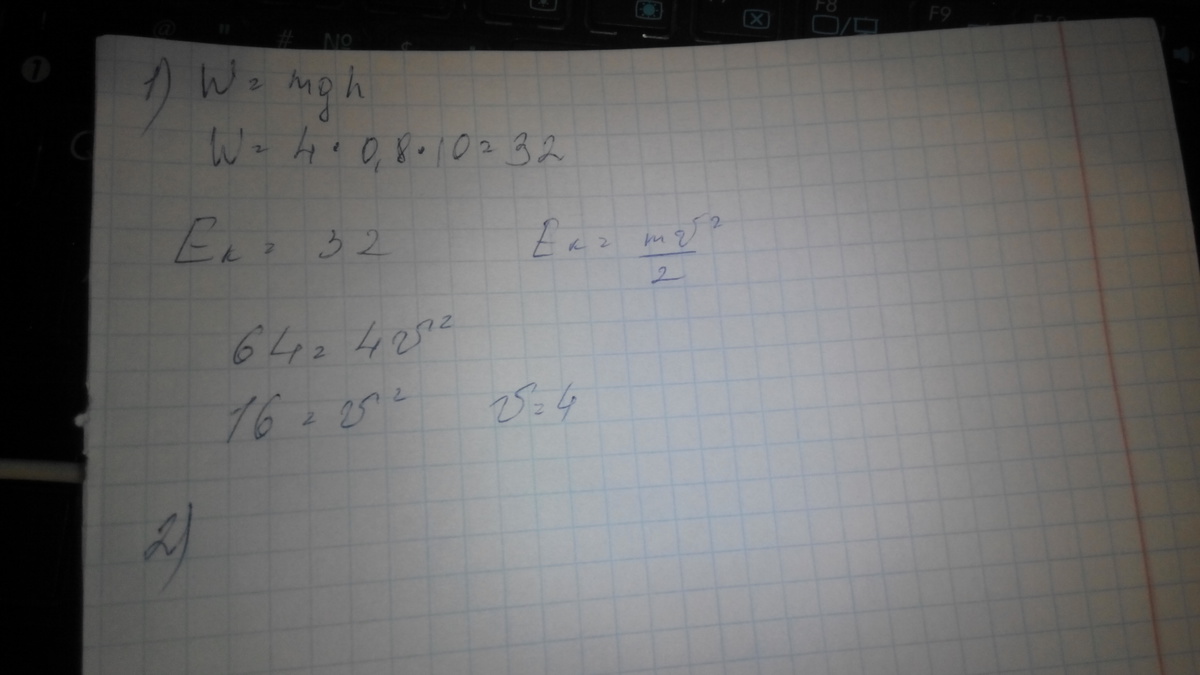 F8
F9
F10
@ " # №
1) W = mgh
W = 4 · 0,8 · 10 = 32
Eк = 32 Eк = mv²/2
64 = 4v²
16 = v² v = 4
2)